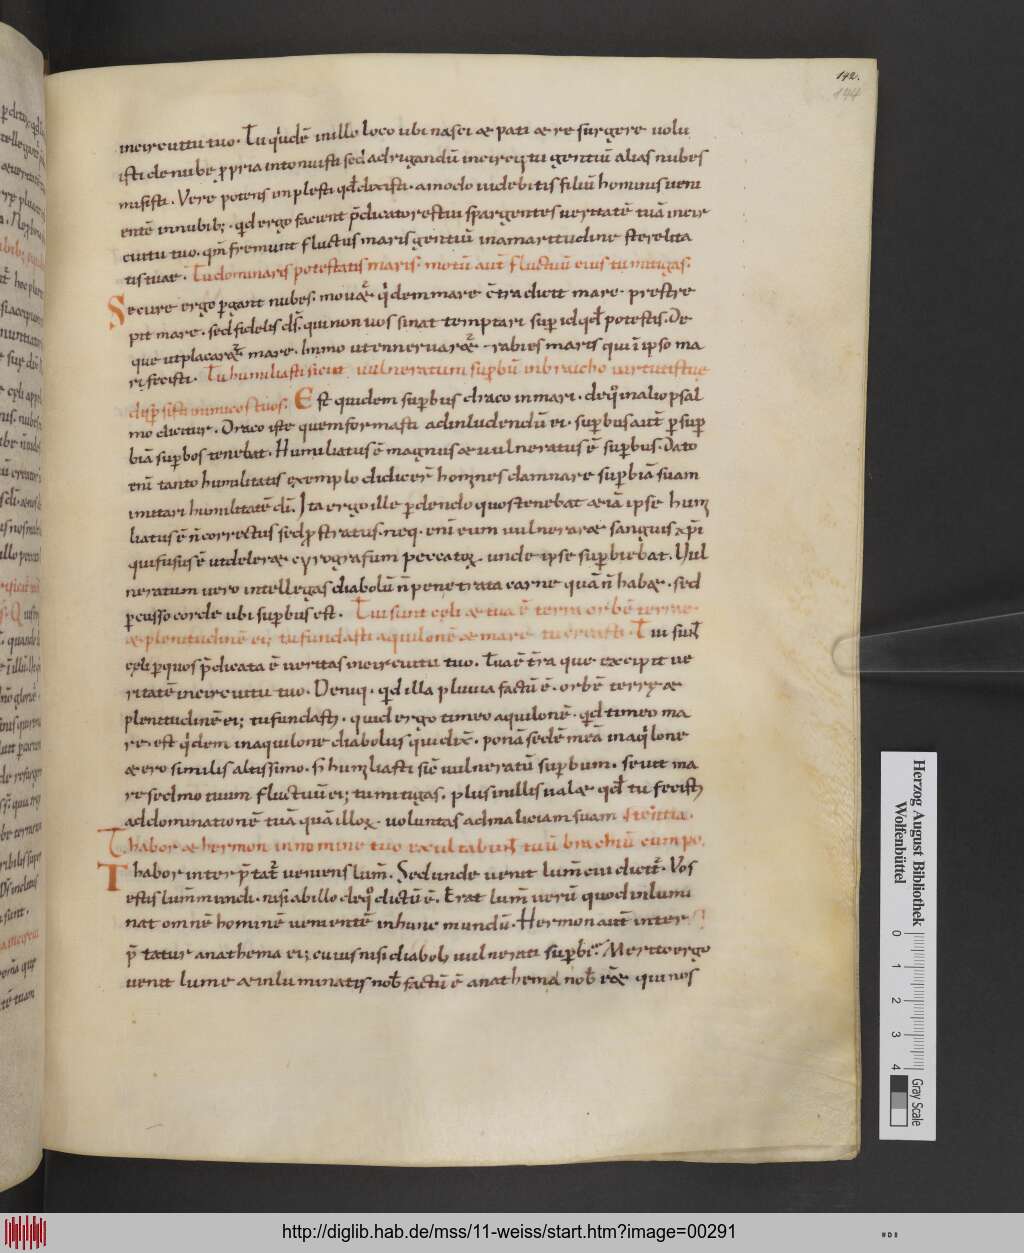 142.
144
incircuitu tuo. Tu quidē inillo loco ubi nasci & pati & resurgere uolu
isti denube ꝓpria intonuisti sed adrigandū incircuitu gentiū alias nubes
misisti. Vere potens implesti qđ dixisti. amodo uidebitis filiū hominis ueni
entē innubib; . qd ergo facient p̄dicatores tui spargentes ueritatē tuā incir
cuitu tuo. qm̄ fremunt fluctus maris gentiū inamaritudine sterelita
tis tuae. Tu dominaris potestatis maris. motū aut̄ fluctuū eius tu mitigas.
Secure ergo ꝑgant nubes. mouet̄ qidem mare c̄tradicit mare. prestre
pit mare. sed fidelis dś. qui non uos sinat temptari suꝑ id qđ potestis. De
que utplacaret̄ mare. Immo utenneruaret̄ rabies maris qui in ipso ma
ri fecisti. Tu humiliasti sicut uulneratum suꝑbū inbrachio uirtutis tuę
disꝑsisti inimicos tuos. Est quidem suꝑbus draco inmari. deqo inalio psal
mo dicitur. Draco iste quem formasti adinludendū ei. suꝑbus aut̄ ꝑ suꝑ
biā suꝑbos tenebat. Humiliatus ē magnus & uulneratus ē suꝑbus. Dato
eni tanto humilitatis exemplo didicer̄ homines damnare suꝑbiā suam
imitari humilitatē dī. Ita ergo ille ꝑdendo quos tenebat & iā ipse humi
liatus ē n̄ correctus sed ꝓstratus. neq. enī eum uulneraret sanguis xp̄i
qui fusus ē utdeleret cyrografum peccatoꝝ. unde ipse suꝑbiebat. Vul
neratum uero intellegas diabolū n̄ penetrata carne quā n̄ habet. sed
ꝑcusso corde ubi suꝑbus est. Tui sunt cęli & tua ē terra orbē terrae
& plenitudinē ei; tu fundasti aquilonē & mare tu creasti. Tui sunt
cęli ꝑ quos p̄dicata ē ueritas incircuitu tuo. Tua ē t̄ra que excipit ue
ritatē incircuitu tuo. Deniq. qd illa pluuia factū ē. orbē terrę &
plenitudinē ei; tu fundasti. quid ergo timeo aquilonē. qd timeo ma
re. est qidem inaquilone diabolus qui dix̄. ponā sedē meā inaqilone
& ero similis altissimo. s; humiliasti sic̄ uulneratū suꝑbum. seuit ma
re sed motuum fluctuū ei; tu mitigas. plus inillis ualet qđ tu fecisti
addominationē tuā quā illoꝝ. uoluntas ad maliciam suam
Thabor & hermon innomine tuo exultabunt tuū brachiū cum po.
Thabor interp̄tat̄ ueniens lum̄. Sed unde uenit lum̄ cui dicit̄. Vos
estis lum̄ mundi. nisi abillo deqo dictū ē. Erat lum̄ uerū quod inlumi
nat omnē hominē uenientē inhunc mundū. Hermon aut̄ inter
p̄tatur anathema ei; cuius nisi diaboli uulnerati suꝑbi. Merito ergo
uenit lumē & inluminatis nob̄ factū ē anathema nob̄ qui nos
Herzog August Bibliothek
Wolfenbüttel
0 1 2 3 4
Gray Scale
http://diglib.hab.de/mss/11-weiss/start.htm?image=00291